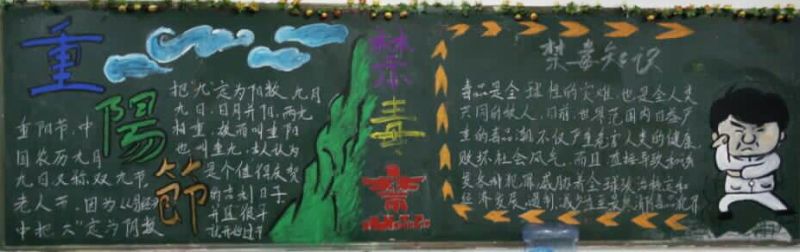 重陽節
重阳节,中
国农历九月
九日又称双九节,
老人节,因为《易经》
中把"六"定为阴数
把"九"定为阳数,九月
九日,日月并阳,两九
相重,故而叫重阳
也叫重九,古人认为
是个值得庆贺
的吉利日子
并且很早
就开始过节
禁毒
禁毒知识
毒品是全球性的灾难,也是全人类
共同的敌人,目前,世界范围内日益严
重的毒品潮不仅严重危害人类的健康
败坏社会风气,而且直接导致和诱
发各州犯罪,威胁着全球政治稳和
经济发展,遏制